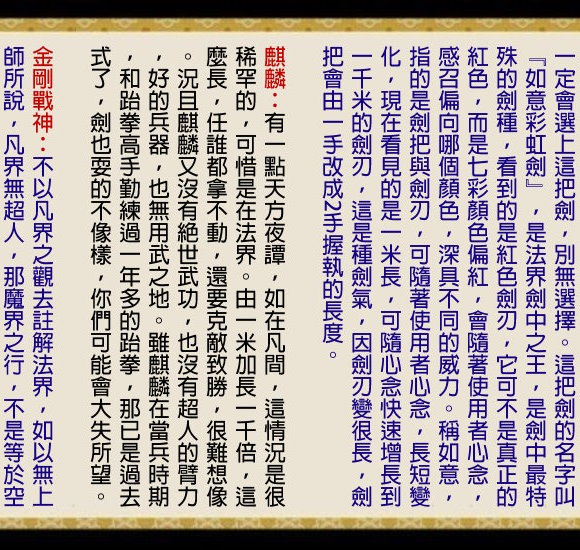 一定會選上這把劍，別無選擇。這把劍的名字叫
『如意彩虹劍』，是法界劍中之王，是劍中最特
殊的劍種，看到的是紅色劍刃，它可不是真正的
紅色，而是七彩顏色偏紅，會隨著使用者心念，
感召偏向哪個顏色，深具不同的威力。稱如意，
指的是劍把與劍刃，可隨著使用者心念，長短變
化，現在看見的是一米長，可隨心念快速增長到
一千米的劍刃，這是種劍氣，因劍刃變很長，劍
把會由一手改成2手握執的長度。
麒麟：有一點天方夜譚，如在凡間，這情況是很
稀罕的，可惜是在法界。由一米加長一千倍，這
麼長，任誰都拿不動，還要克敵致勝，很難想像
。況且麒麟又沒有絕世武功，也沒有超人的臂力
，好的兵器，也無用武之地。雖麒麟在當兵時期
，和跆拳高手勤練過一年多的跆拳，那已是過去
式了，劍也耍的不像樣，你們可能會大失所望。
金剛戰神：不以凡界之觀去註解法界，如以無上
師所說，凡界無超人，那魔界之行，不是等於空